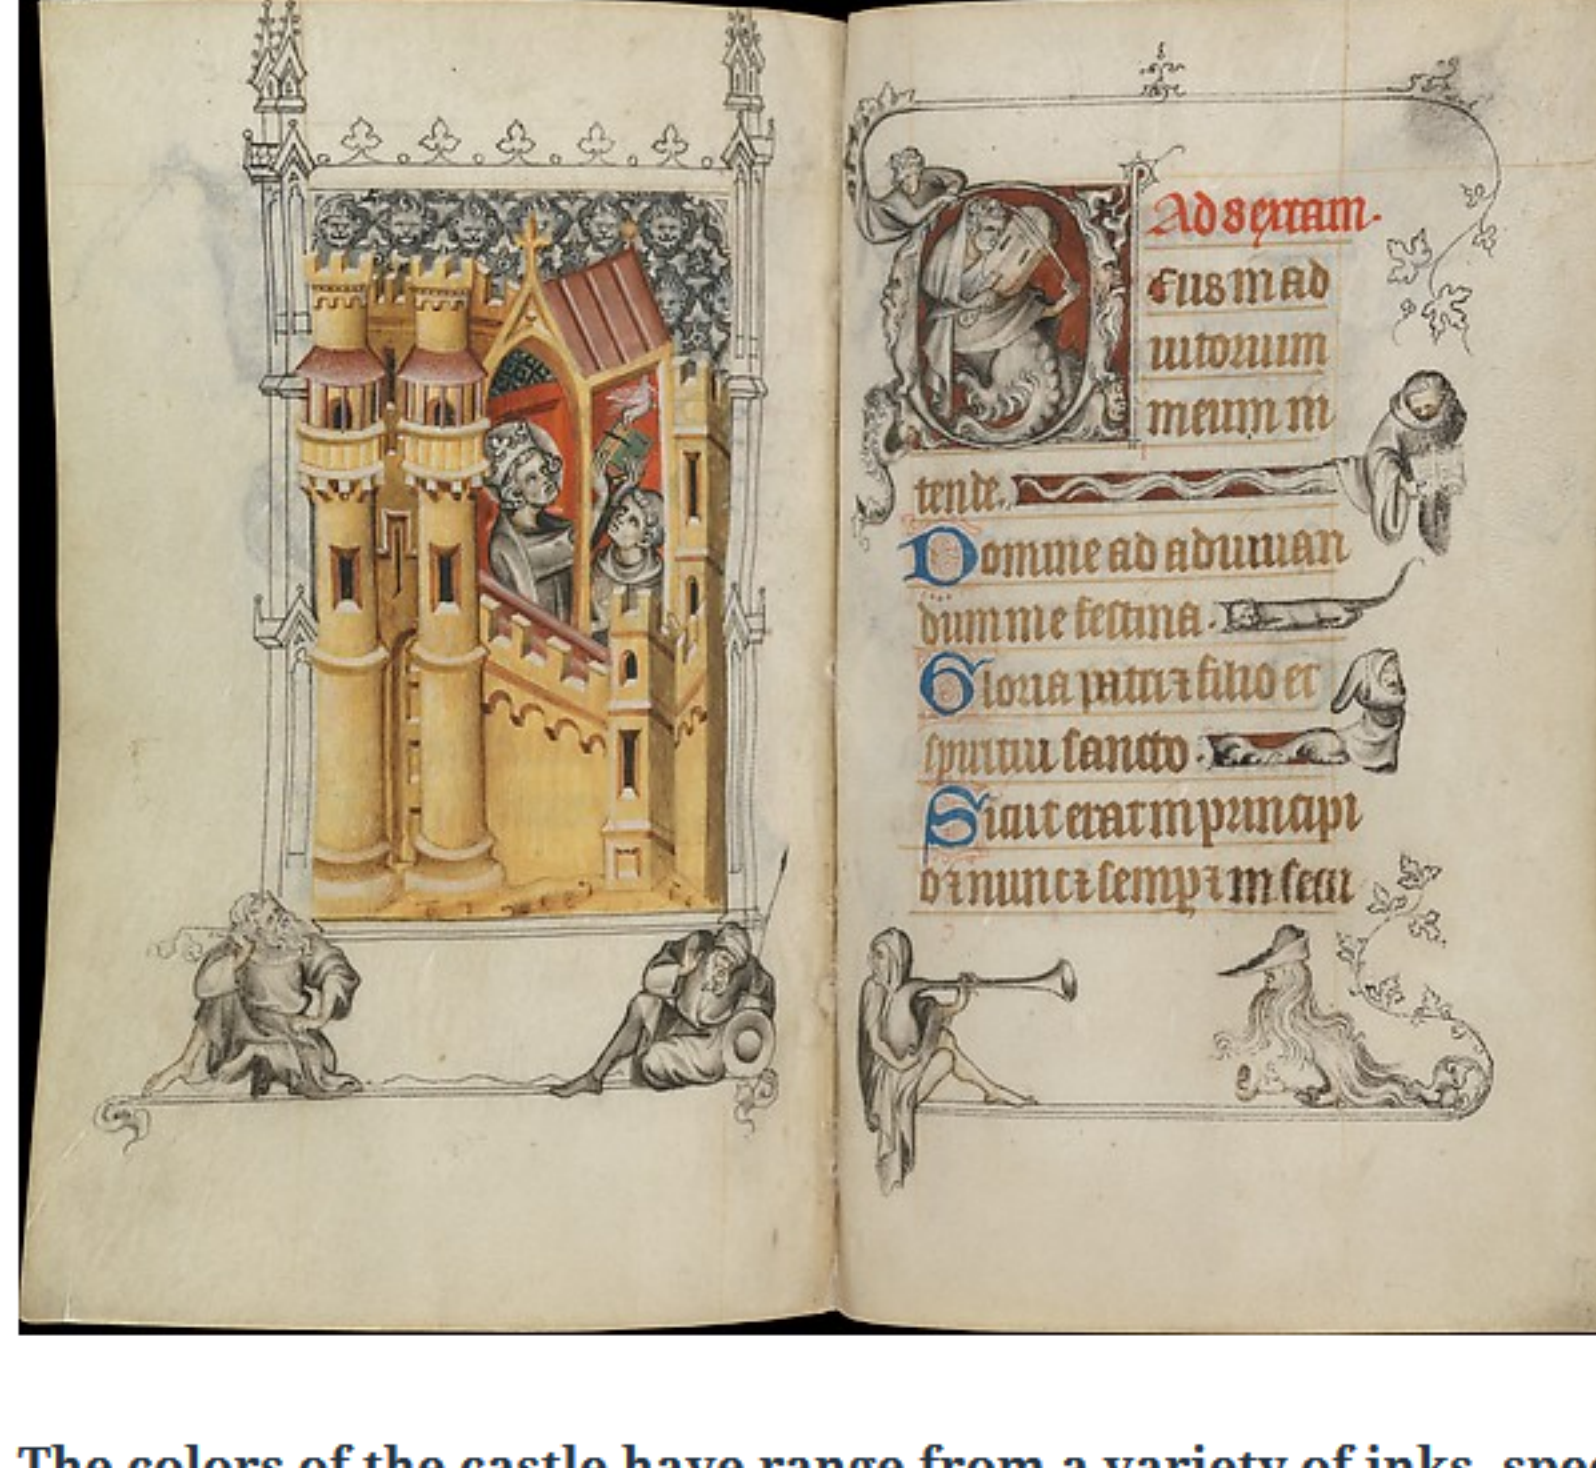 Ad sextam.
Deus in ad
iutorium
meum in
tende.
Domine ad adiuuan
dum me festina.
Gloria patri ⁊ filio et
spiritui sancto.
Sicut erat in principi
o ⁊ nunc ⁊ semp ⁊ in secu
The colors of the castle have range from a variety of inks, spe